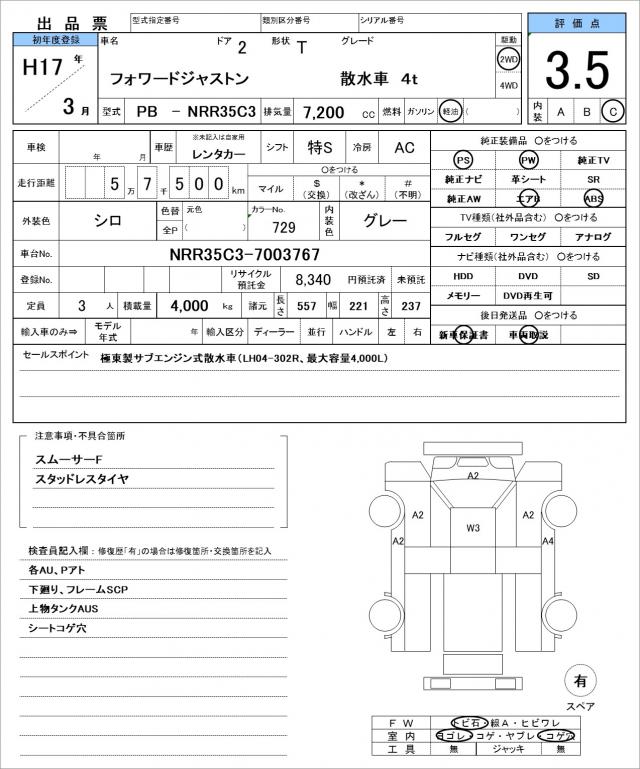 出品票 型式指定番号 類別区分番号 シリアル番号
評価点
初年度登録 車名 ドア 2 形状 T グレード 駆動
H17 年 フォワードジャストン 散水車 4t 2WD
3.5
3 月 4WD
型式 PB － NRR35C3 排気量 7,200 cc 燃料 ガソリン 軽油 ( ) 内装 A B C
車検 年 月 車歴 ※未記入は自家用 レンタカー シフト 特S 冷房 AC
純正装備品 〇をつける
PS PW 純正TV
走行距離 5 万 7 千 5 0 0 km 〇をつける
マイル $ (交換) * (改ざん) # (不明)
純正ナビ 革シート SR
純正AW エアB ABS
外装色 シロ 色替 元色 カラーNo. 内装色 グレー
全P ( ) 729
TV種類(社外品含む) 〇をつける
フルセグ ワンセグ アナログ
車台No. NRR35C3-7003767
ナビ種類(社外品含む) 〇をつける
登録No. リサイクル預託金 8,340 円預託済 未預託
HDD DVD SD
メモリー DVD再生可
定員 3 人 積載量 4,000 kg 諸元 長さ 557 幅 221 高さ 237
後日発送品 〇をつける
輸入車のみ⇒ モデル年式 年 輸入区分 ディーラー 並行 ハンドル 左 右
新車保証書 車両取説
セールスポイント 極東製サブエンジン式散水車(LH04-302R、最大容量4,000L)
注意事項・不具合箇所
スムーサーF
スタッドレスタイヤ
検査員記入欄：修復歴「有」の場合は修復箇所・交換箇所を記入
各AU、Pアト
下廻り、フレームSCP
上物タンクAUS
シートコゲ穴
A2
A2 A2
W3
A2 A4
有
スペア
FW トビ石・線A・ヒビワレ
室内 ヨゴレ・コゲ・ヤブレ・コゲ穴
工具 無 ジャッキ 無